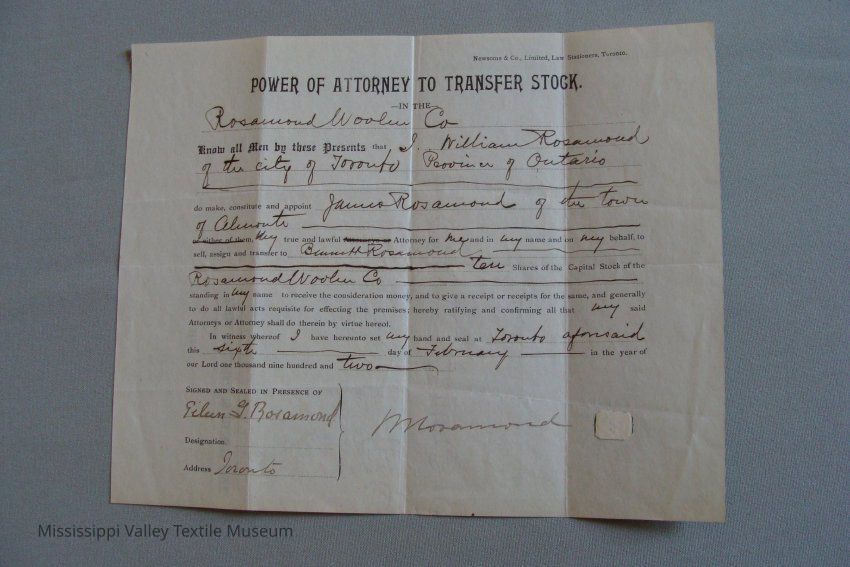 Newsome & Co., Limited, Law Stationers, Toronto.
POWER OF ATTORNEY TO TRANSFER STOCK.
—IN THE—
Rosamond Woolen Co
Know all Men by these Presents that I, William Rosamond
of the city of Toronto Province of Ontario
do make, constitute and appoint James Rosamond of the town
of Almonte
or either of them, my true and lawful Attorneys or Attorney for me and in my name and on my behalf, to
sell, assign and transfer to Bennett Rosamond
ten Shares of the Capital Stock of the
Rosamond Woolen Co
standing in my name to receive the consideration money, and to give a receipt or receipts for the same, and generally
to do all lawful acts requisite for effecting the premises; hereby ratifying and confirming all that my said
Attorneys or Attorney shall do therein by virtue hereof.
In witness whereof I have hereunto set my hand and seal at Toronto aforesaid
this sixth day of February in the year of
our Lord one thousand nine hundred and two
SIGNED AND SEALED IN PRESENCE OF
Eileen G. Rosamond
W Rosamond
Designation.
Address Toronto
Mississippi Valley Textile Museum